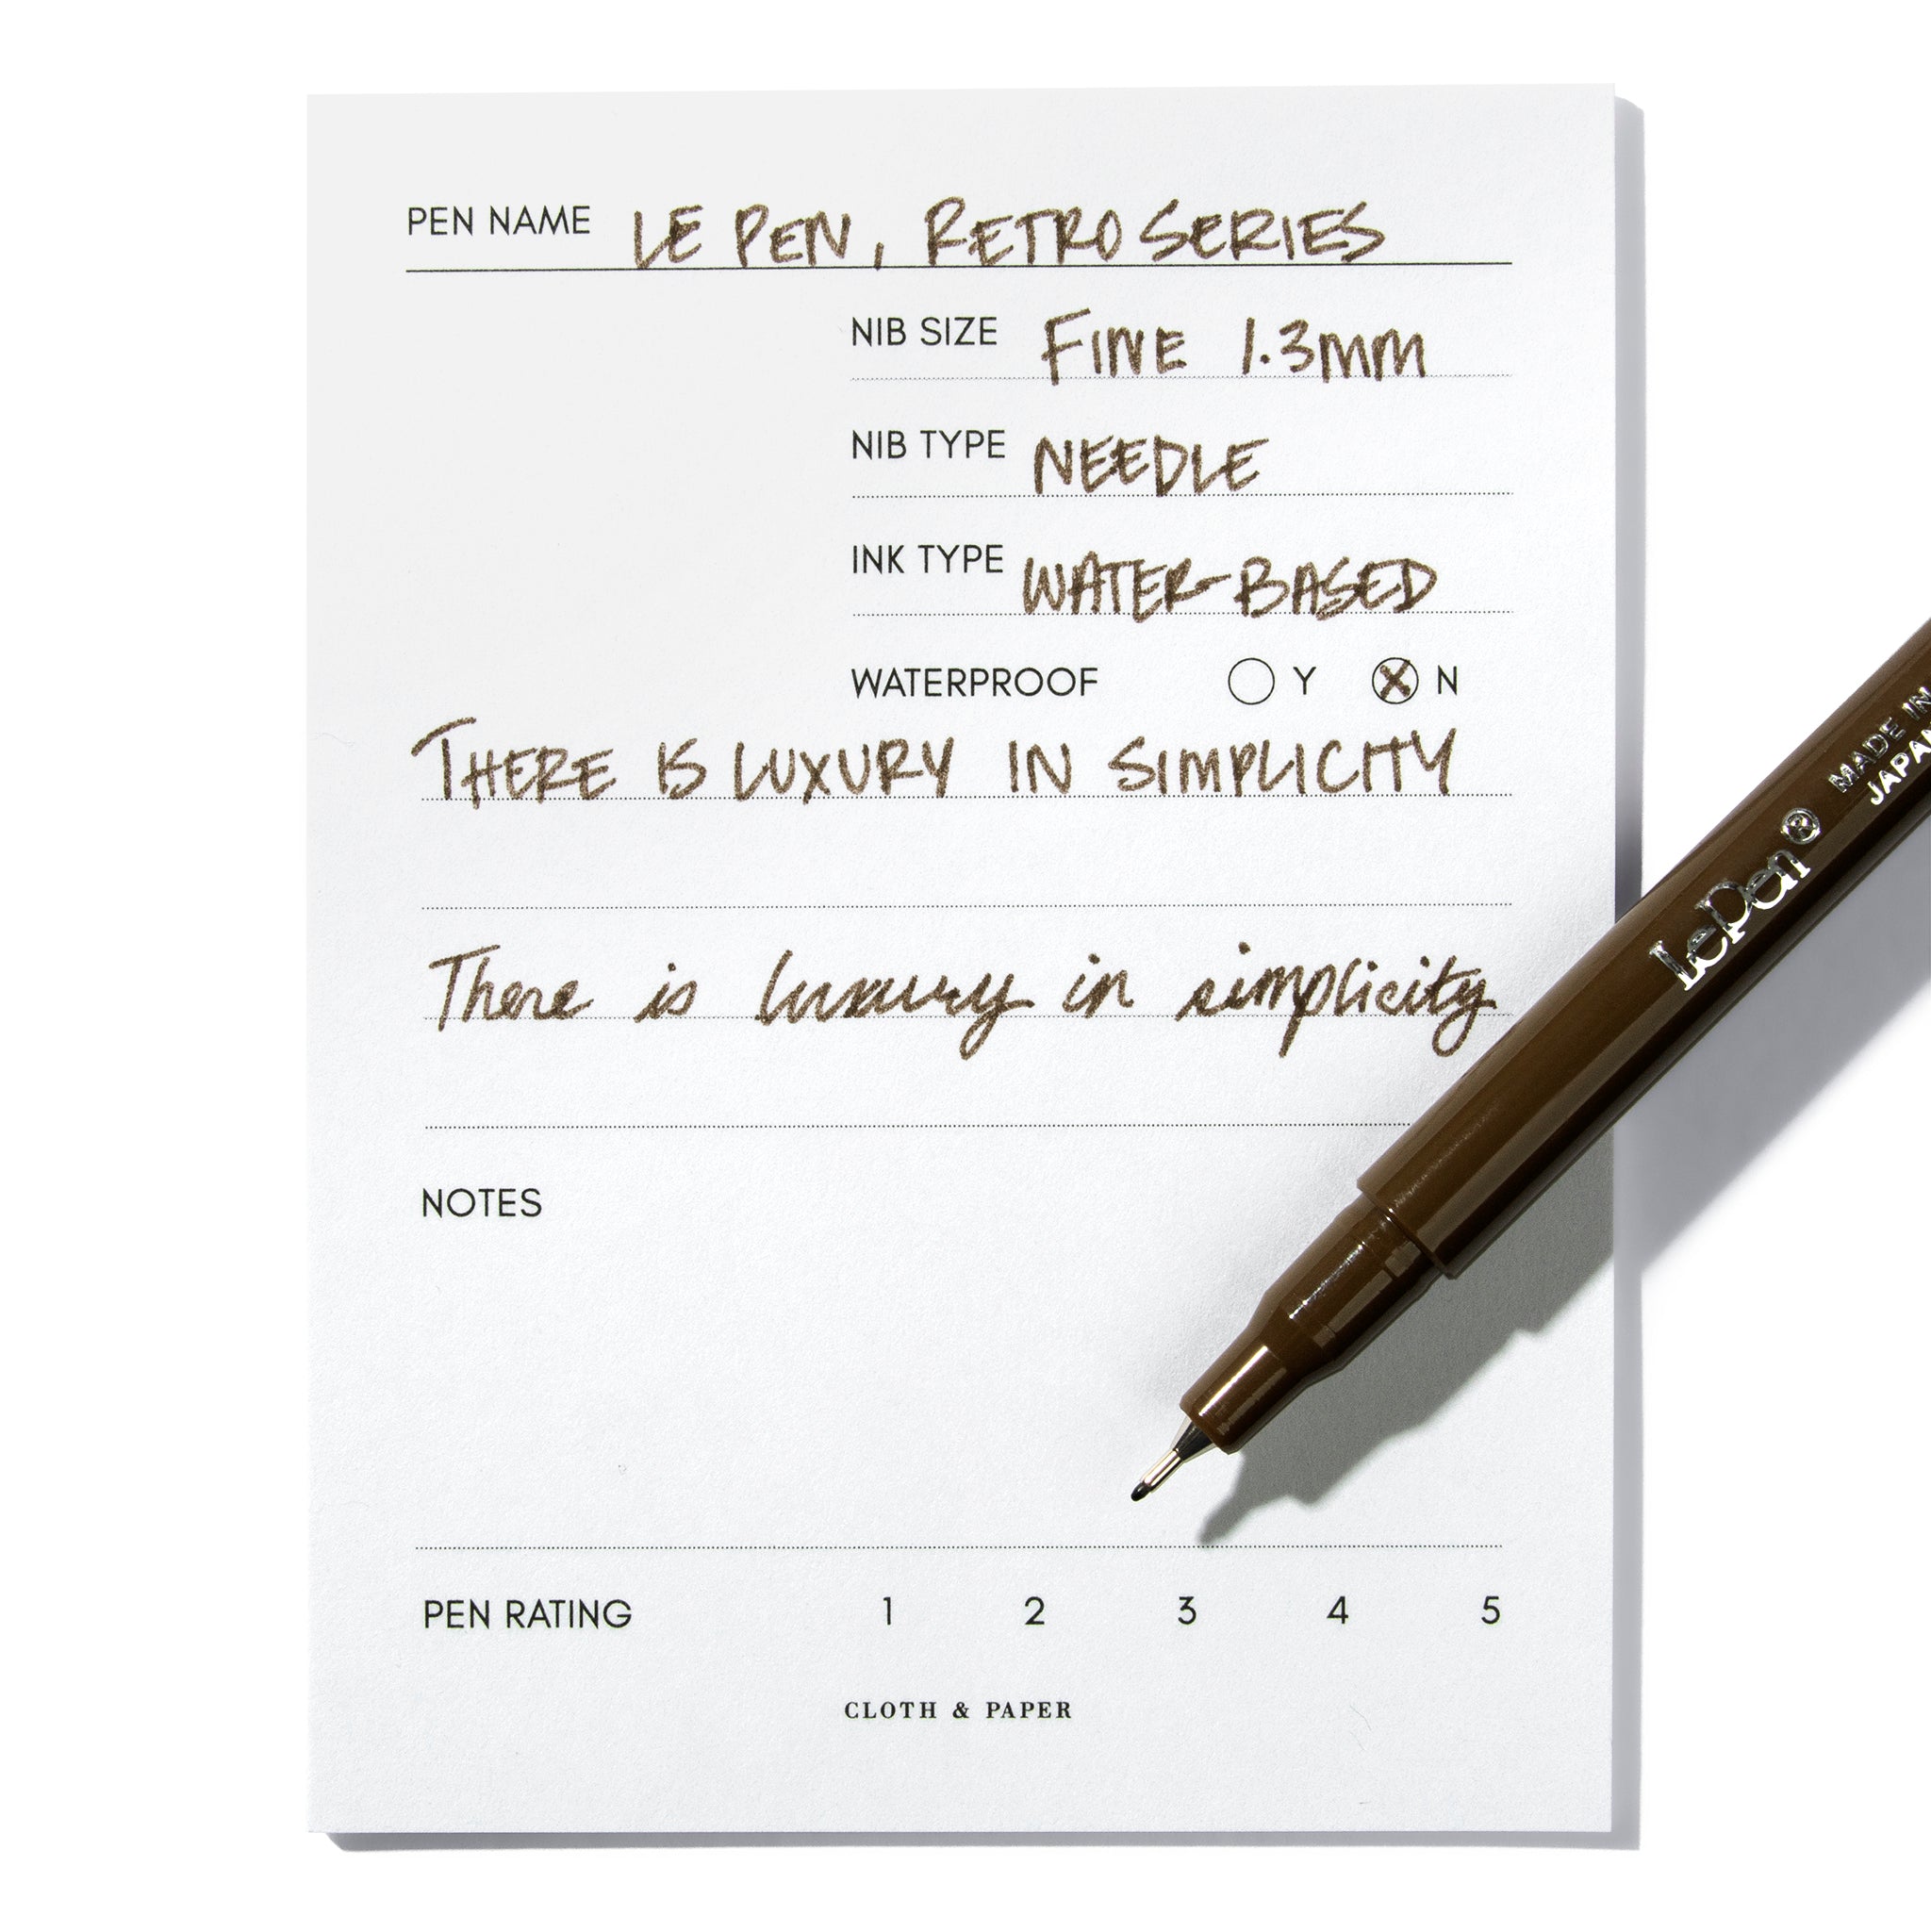 PEN NAME LE PEN, RETRO SERIES
NIB SIZE FINE 1.3mm
NIB TYPE NEEDLE
INK TYPE WATER-BASED
WATERPROOF Y X N
THERE IS LUXURY IN SIMPLICITY
There is luxury in simplicity
NOTES
PEN RATING 1 2 3 4 5
CLOTH & PAPER
LePen®
MADE IN